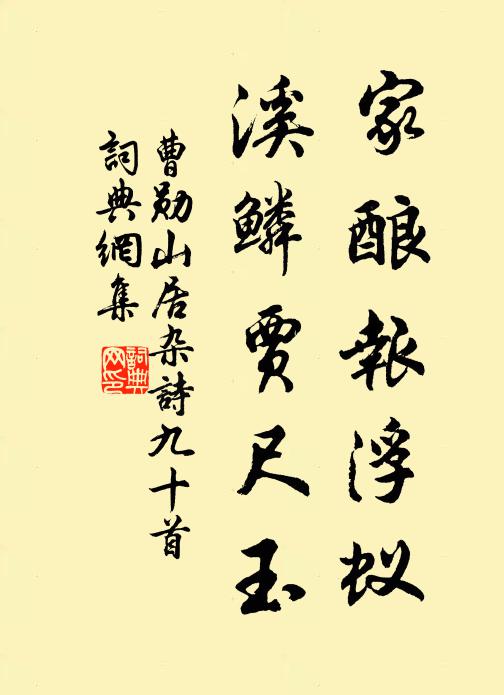 家酿報浮蚁
溪鳞賈尺玉
曹勋山居杂詩九十首
詞典網集
詞典网印